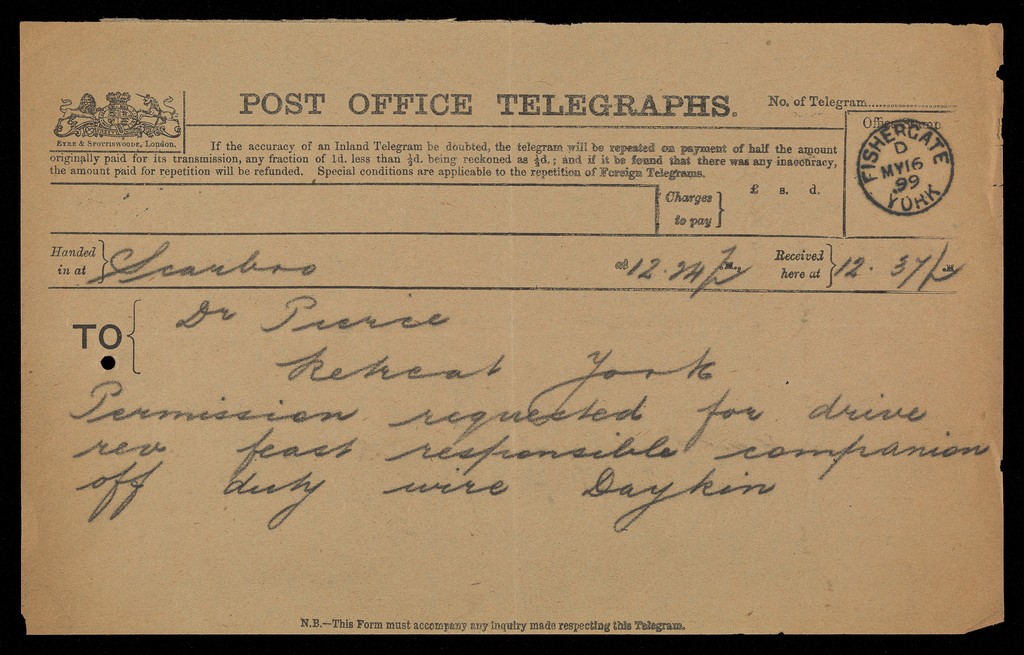 POST OFFICE TELEGRAPHS.
No. of Telegram
EYRE & SPOTTISWOODE, London.
If the accuracy of an Inland Telegram be doubted, the telegram will be repeated on payment of half the amount
originally paid for its transmission, any fraction of 1d. less than ½d. being reckoned as ½d.; and if it be found that there was any inaccuracy,
the amount paid for repetition will be refunded. Special conditions are applicable to the repetition of Foreign Telegrams.
FISHERGATE
D
MY 16
99
YORK
Charges
to pay
£ s. d.
Handed
in at
Scarbro
at 12.24/P M.,
Received
here at
12.37/P M
TO
Dr Pierce
Retreat York
Permission requested for drive
rev feast responsible companion
off duty wire Daykin
N.B.—This Form must accompany any inquiry made respecting this Telegram.